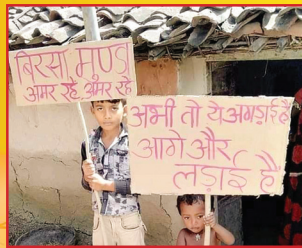 बिरसा मुण्डा
अमर रहे, अमर रहे
अभी तो ये अंगड़ाई है
आगे और
लड़ाई है